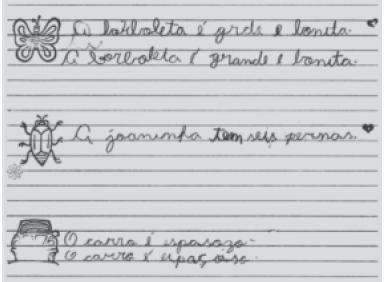 A borboleta é grde e bonita.
A borboleta é grande e bonita.
A joaninha tem seis pernas.
O carro é espasozo.
O carro é espaçoso.